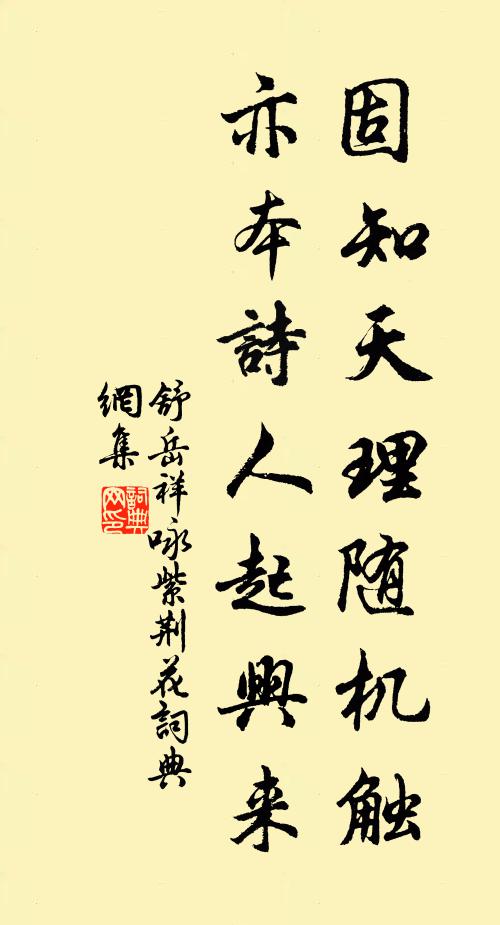 固知天理随机触
亦本詩人起興来
舒岳祥咏紫荆花詞典
網集
詞典网印